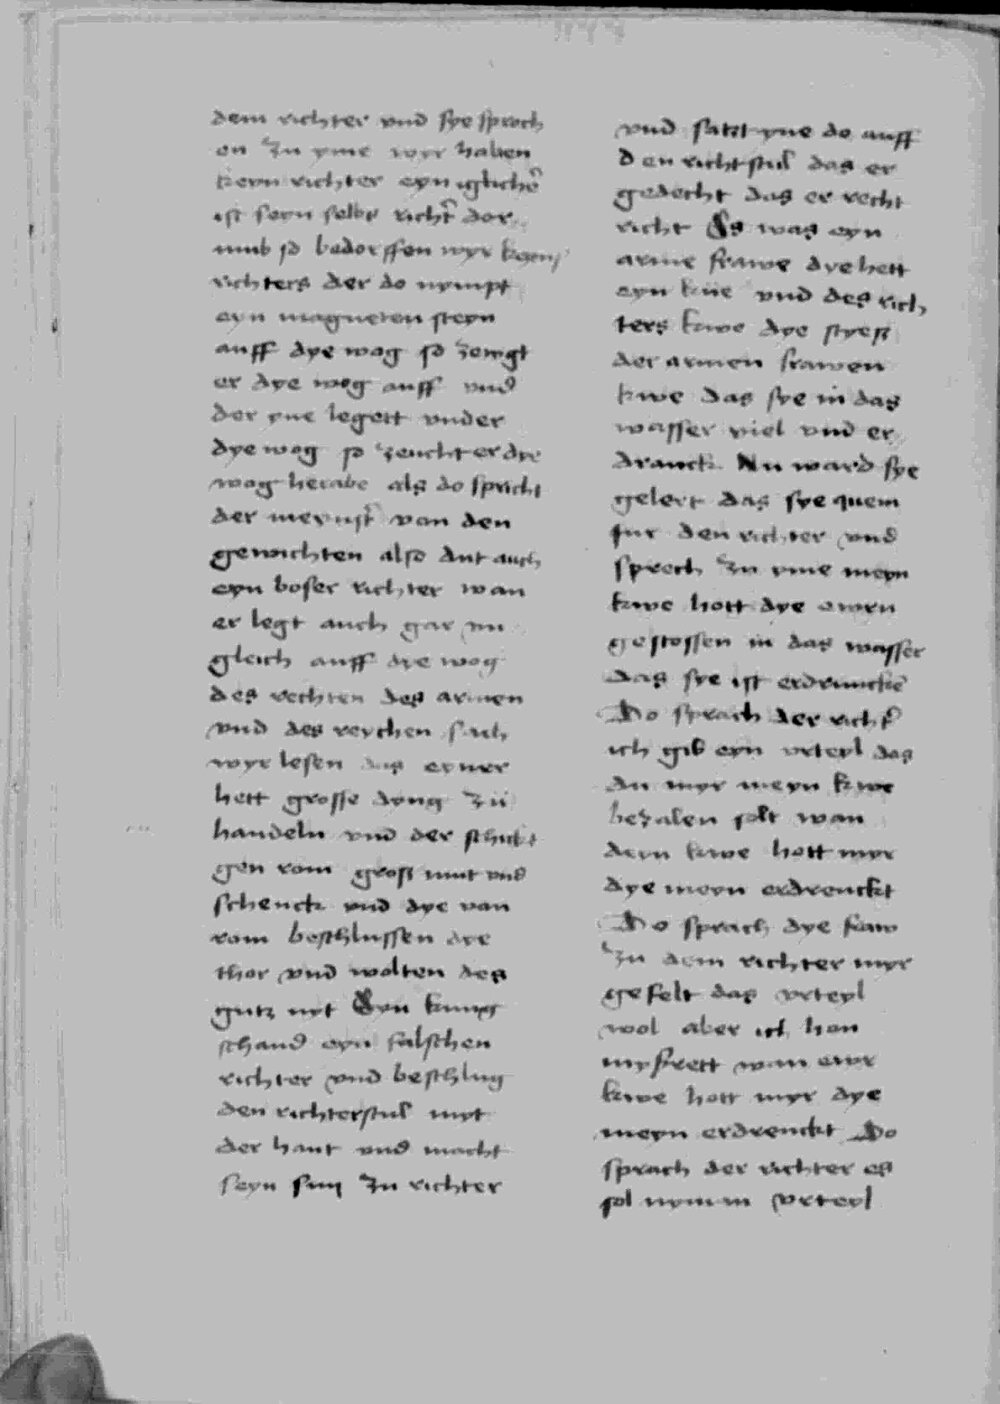 dem richter vnd sye sproch
en zu yme wyr haben
keyn richter eyn iglichẽ
ist seyn selbs richt̃ dor
vmb so bedorffen wyr keyns
richters der do nympt
eyn magneten steyn
auff dye wog so zewgt
er dye wog auff vnd
der yne legett vnder
dye wog so zeucht er dye
wog herabe als do spricht
der meynst̃ von den
gewichten also dut auch
eyn boser richter wan
er legt auch gar vn
gleich auff dye wog
des rechten des armen
vnd des reychen sach
wyr lesen das eyner
hett grosse dyng zu
handeln vnd der schickt
gen rom groß mut vnd
schenck vnd dye von
rom beschlussen dye
thor vnd wolten des
gutz nyt Eyn kunig
schand eyn falschen
richter vnd beschlug
den richterstul myt
der haut vnd macht
seyn sun zu richter
vnd satzt yne do auff
den richtstul das er
gedecht das er recht
richt Es was eyn
arme frawe dye hett
eyn kue vnd des rich
ters kwe dye styeß
der armen frawen
kwe das sye in das
wasser viel vnd er
dranck Nu ward sye
gelert das sye quem
fur den richter vnd
sprech zu yme meyn
kwe hott dye ewrn
gestossen in das wasser
das sye ist erdrunckẽ
Do sprach der richt̃
ich gib eyn vrteyl das
du myr meyn kwe
bezalen solt wan
deyn kwe hott myr
dye meyn erdrenckt
Do sprach dye fraw
zu dem richter myr
gefelt das vrteyl
wol aber ich han
myßrett wan ewr
kwe hott myr dye
meyn erdrenckt Do
sprach der richter es
sol nymm vrteyl